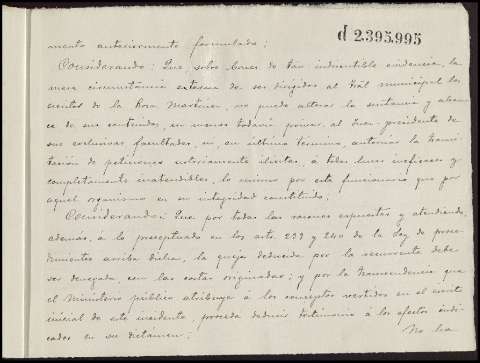 d 2.395.995
mento anteriormente formulado;
Considerando: Que, sobre bases de tan indiscutible evidencia, la
mera circunstancia externa de ser dirigidos al Tral municipal los
escritos de la Rosa Martínez, no puede alterar la sustancia y alcan-
ce de sus contenidos, ni menos todavía privar, al Juez-presidente de
sus exclusivas facultades, ni, en último término, autorizar la trami-
tación de peticiones notoriamente ilícitas, á todas luces ineficaces y
completamente inatendibles, lo mismo por este funcionario que por
aquel organismo en su integridad constituido.
Considerando: Que por todas las razones expuestas y atendiendo,
además, á lo preceptuado en los arts. 239 y 240 de la Ley de proce-
dimientos arriba dicha, la queja deducida por la recurrente debe
ser denegada, con las costas originadas; y por la trascendencia que
el Ministerio público atribuye á los conceptos vertidos en el escrito
inicial de este incidente procede deducir testimonio á los efectos indi-
cados en su dictamen;
No ha